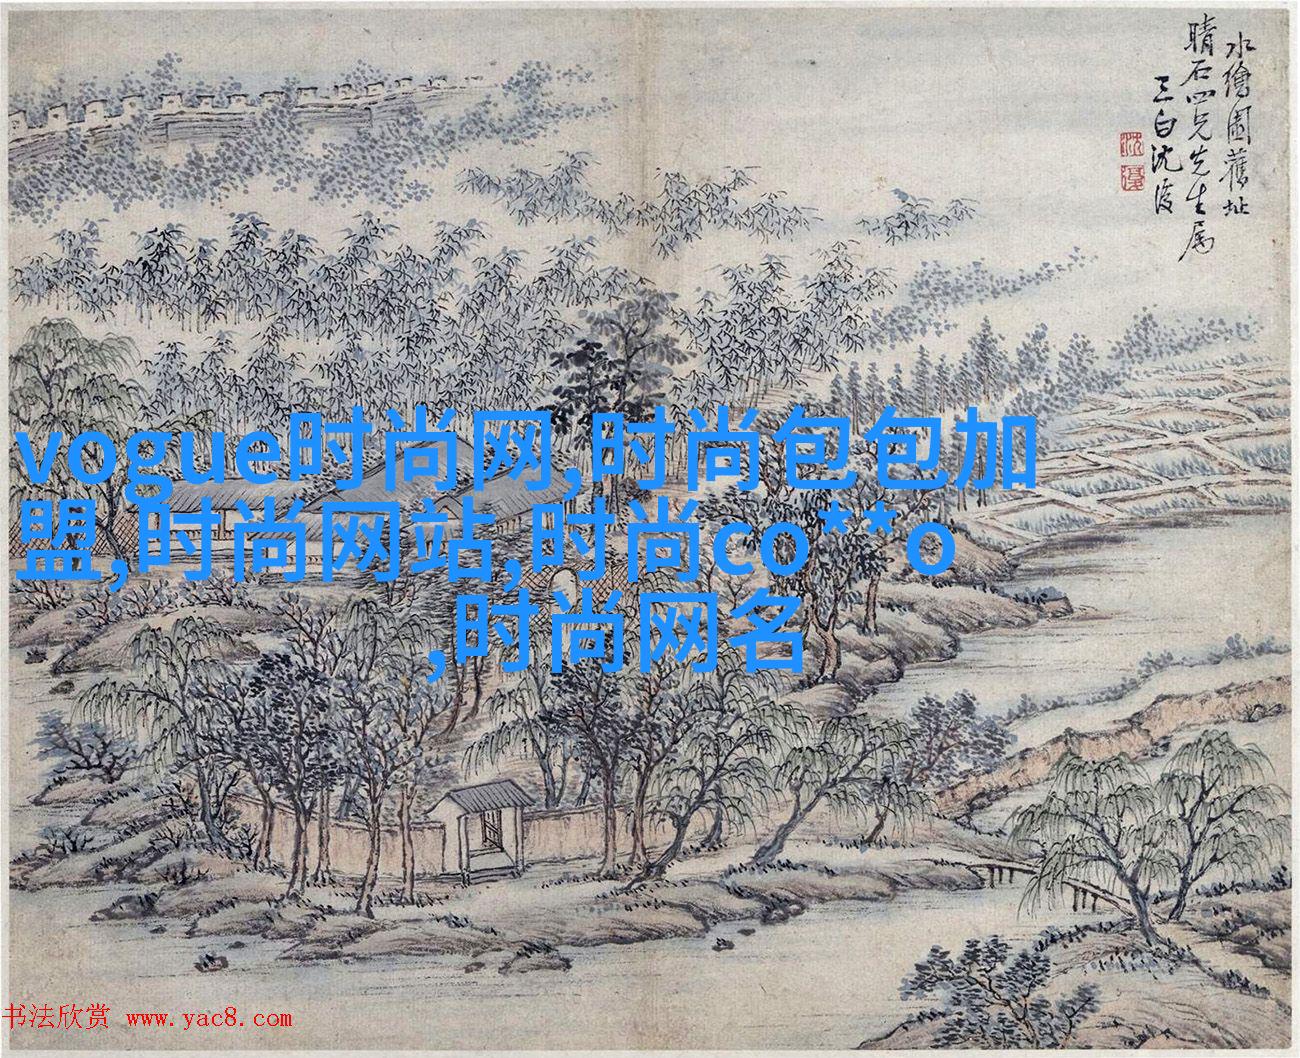 水繪園舊址
晴石四兄先生属
三白沈復
沈
復
vogue时尚网,时尚包包加
盟,时尚网站,时尚co**o
,时尚网名
书法欣赏 www.yac8.com